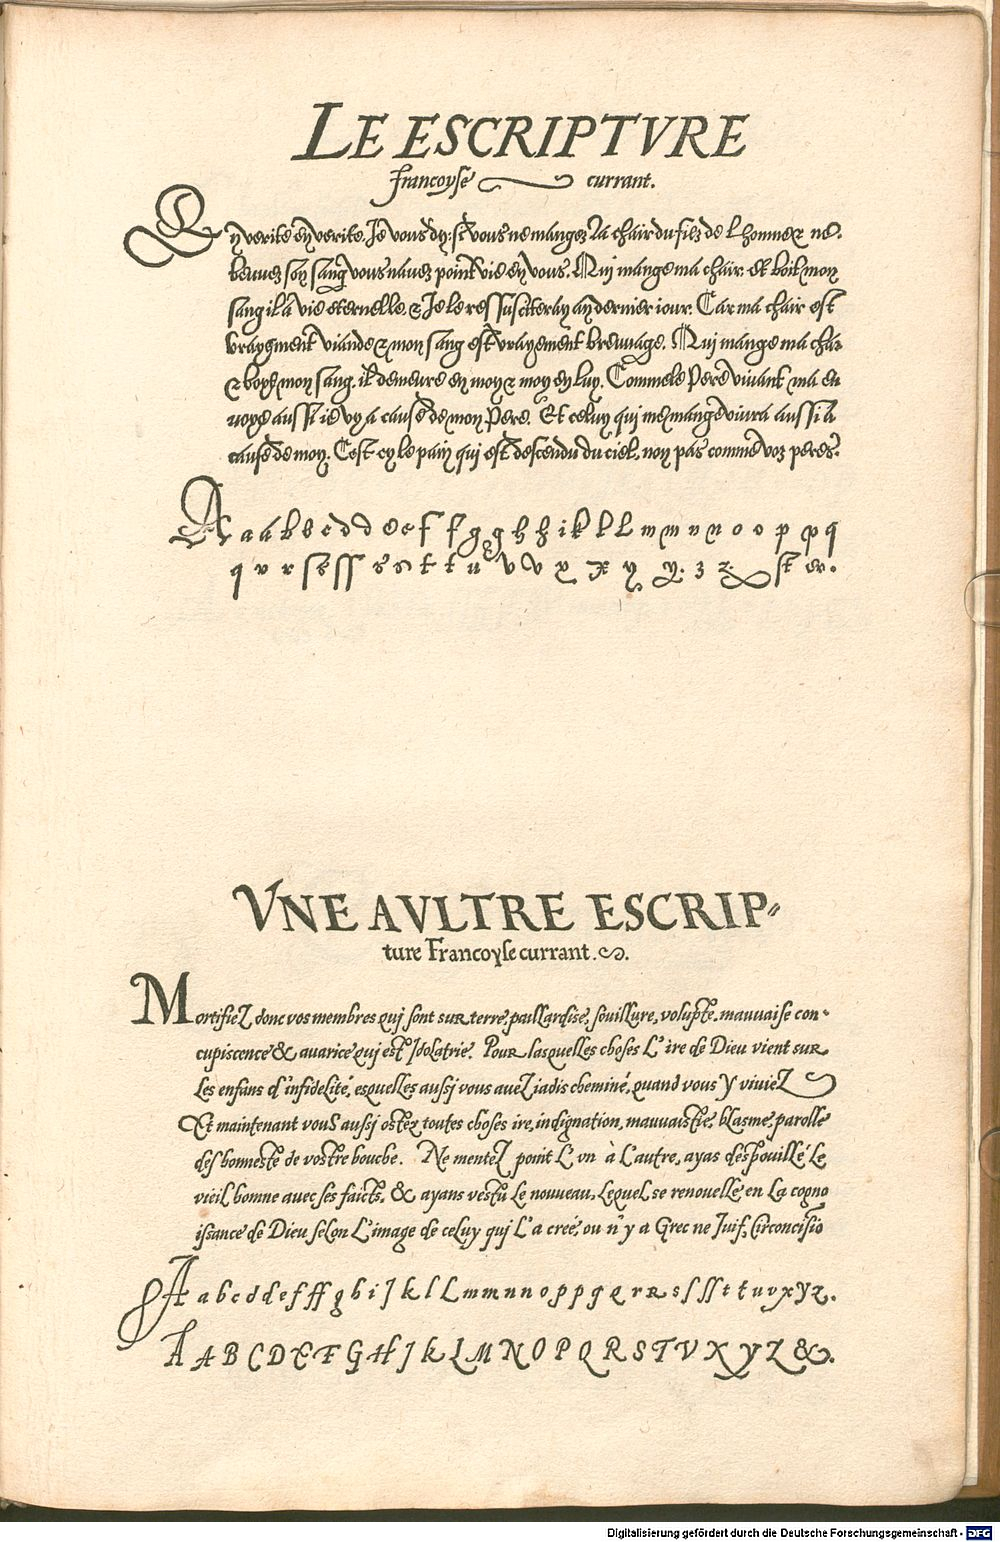 LE ESCRIPTVRE
Francoyse currant.
En verite en verite, Je vous dy: si vous ne mangez la chair du filz de Lhomme & ne
beuvez son sang vous navez point vie en vous. Qui mange ma chair. et boit mon
sang il a vie eternelle. & Je le ressusciteray an dernier iour. Car ma chair est
vrayement viande & mon sang est vrayement breuuage. Qui mange ma chair
& boyt mon sang. il demeure en moy & moy en luy. Comme le Pere vivant ma en
uoye aussi ie vy a cause de mon Pere. Et celuy qui me mange vivra aussi a
cause de moy. Cest cy le pain qui est descendu du ciel. non pas comme voz peres.
A a a b b c d d e e f f g g h h i k l l m m n n o o p p q
q r r s s ss s s t t u v v x x y y. z z. st &.
VNE AVLTRE ESCRIP=
ture Francoyse currant.
Mortifiez donc vos membres quj sont sur terre, paillardise, souillure, volupte. mauuaise con=
cupiscence & auarice quj est Jdolatrie. Pour lasquelles choses L'ire de Dieu vient sur
les enfans d'infidelité, esquelles aussj vous auez iadis cheminé, quand vous y viuiez
Et maintenant vous aussj ostez toutes choses ire, indignation, mauuaistie, blasme, parolle
deshonneste de vostre bouche. Ne mentez point L'vn à L'autre, ayas despouillé Le
vieil homne avec ses faicts, & ayans vestu Le nouveau, Lequel se renouelle en La cogno
issance de Dieu selon L'image de celuy qui L'a creé, ou n'y a Grec ne Juif, Circoncisio
A a b c d d e f ff g h i j k l L m m n n o p p q Q r R s ſ ſſ t t u v x y z.
A A B C D E F G H J K L M N O P Q R S T V X Y Z &.
Digitalisierung gefördert durch die Deutsche Forschungsgemeinschaft - DFG